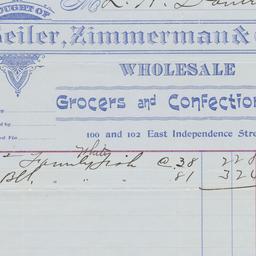 OUGHT OF
eiler, Zimmerman &
WHOLESALE
Grocers and Confection
100 and 102 East Independence Stre
White
2 Family Fish @ .38 228
Bbl " " 81 324